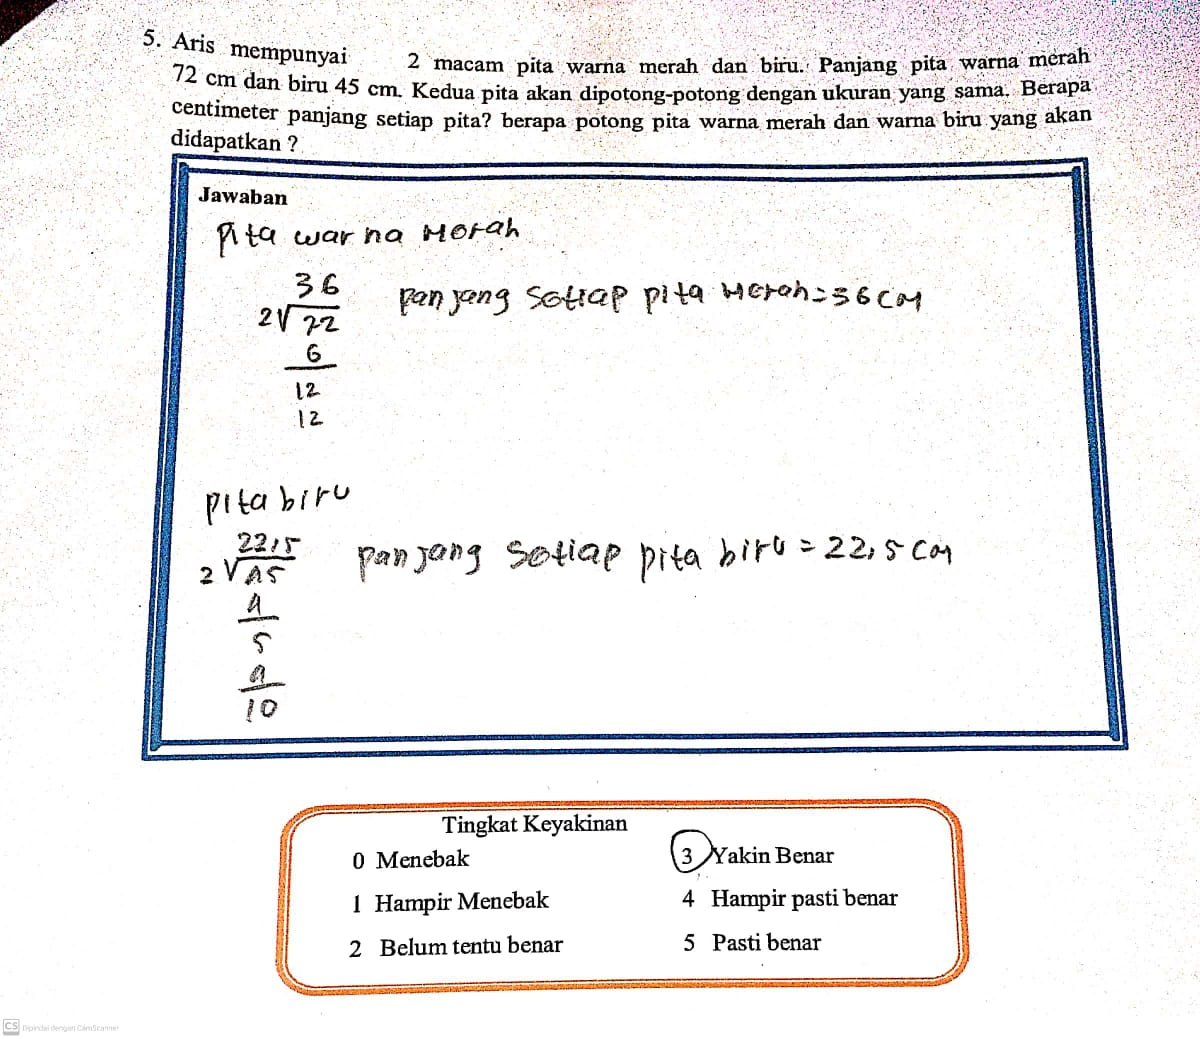 5. Aris mempunyai 2 macam pita warna merah dan biru. Panjang pita warna merah
72 cm dan biru 45 cm. Kedua pita akan dipotong-potong dengan ukuran yang sama. Berapa
centimeter panjang setiap pita? berapa potong pita warna merah dan warna biru yang akan
didapatkan ?
Jawaban
Pita warna Merah
36
2√72
6
12
12
panjang setiap pita Merah = 36 cm
pita biru
22,5
2√45
4
5
4
10
panjang setiap pita biru = 22,5 cm
Tingkat Keyakinan
0 Menebak
3 Yakin Benar
1 Hampir Menebak
4 Hampir pasti benar
2 Belum tentu benar
5 Pasti benar
CS Dipindai dengan CamScanner